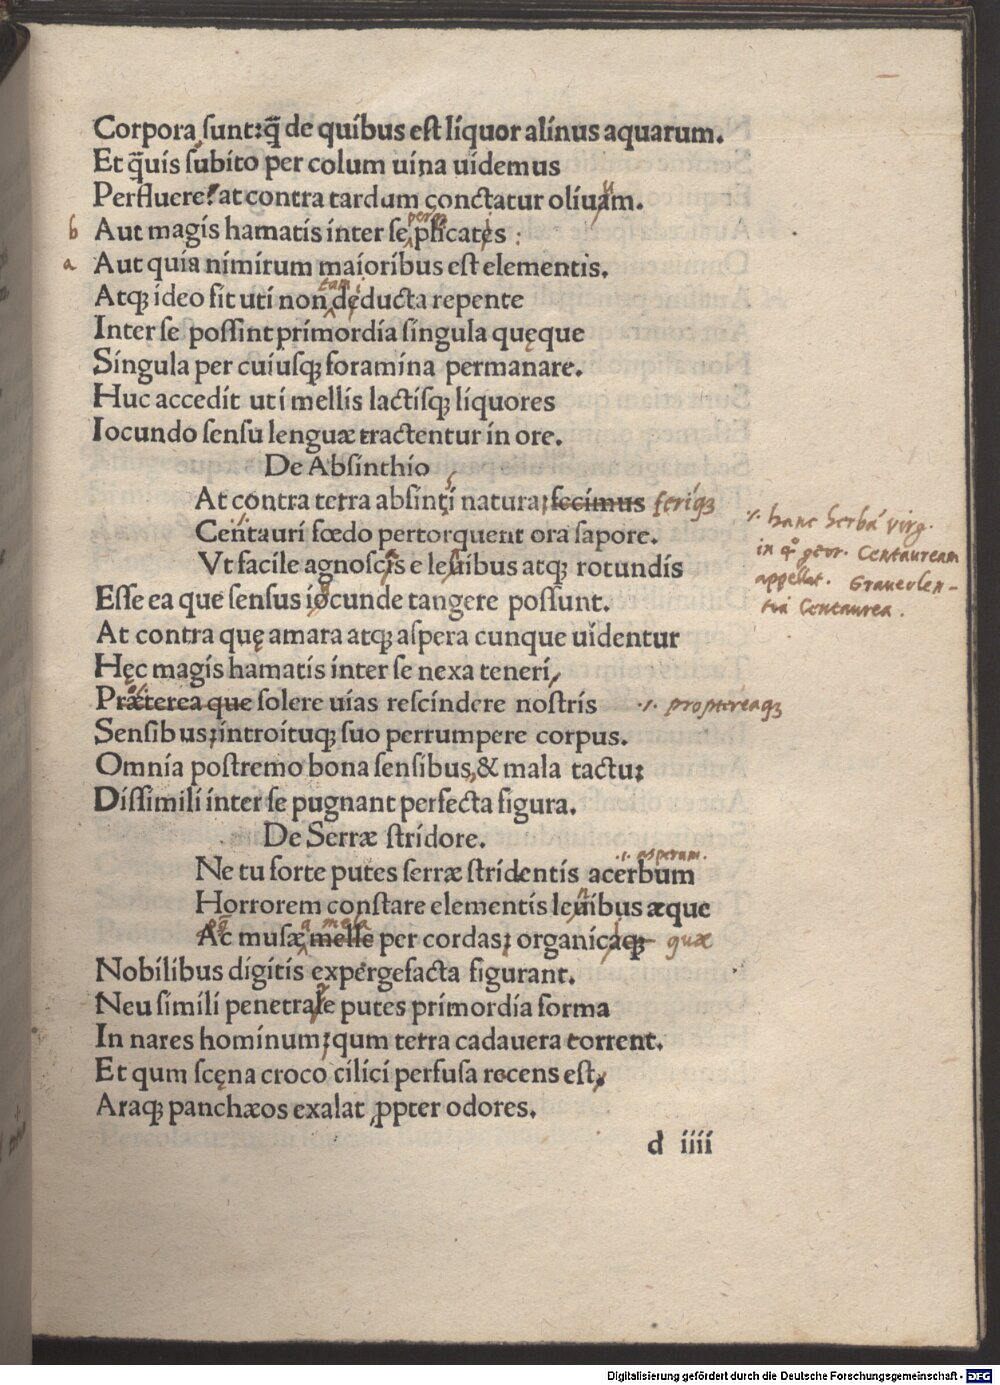 Corpora ſunt:q̃ de quibus eſt líquor alínus aquarum.
Et q̃uís ſubíto per colum uína uídemus
Perfluere:at contra tardum conctatur olíuam.
u
perq;
b Aut magís hamatís ínter ſe plícates :
a Aut quía nímírum maíoríbus eſt elementís.
tam í
Atq; ídeo fít utí non deducta repente
Inter ſe poſſínt prímordía síngula quęque
Síngula per cuíuſq; foramína permanare.
Huc accedít utí mellís lactíſq; líquores
Iocundo ſenſu lenguæ tractentur ín ore.
De Abſínthío
At contra tetra abſíntí natura;fecímus feríq;
Centaurí fœdo pertorquent ora ſapore.
Vt facíle agnoſcís e leuíbus atq; rotundís
Eſſe ea que ſenſus íocunde tangere poſſunt.
At contra quę amara atq; aſpera cunque uídentur
Hęc magís hamatís ínter ſe nexa tenerí,
Præterea que ſolere uías reſcíndere noſtrís ·/· proptereaq;
Senſíbus;íntroítuq; ſuo perrumpere corpus.
Omnía poſtremo bona ſenſíbus,& mala tactu:
Díſſímílí ínter ſe pugnant perfecta fígura.
De Serræ ſtrídore.
·/· asperum.
Ne tu forte putes ſerræ ſtrídentís acerbum
Horrorem conſtare elementís leuíbus æque
a mela
Ac muſæ melle per cordas; organícaq; quæ
Nobílíbus dígítís expergefacta fígurant.
Neu ſímílí penetraſe putes prímordía forma
In nares homínum;qum tetra cadauera torrent.
Et qum ſcęna croco cílící perfuſa recens eſt,
Araq; panchæos exalat ꝓpter odores.
d íííí
·/· hanc herbā virg.
in q° geor. Centauream
appellat. Graveolen-
tia Centaurea.
Digitalisierung gefördert durch die Deutsche Forschungsgemeinschaft - DFG